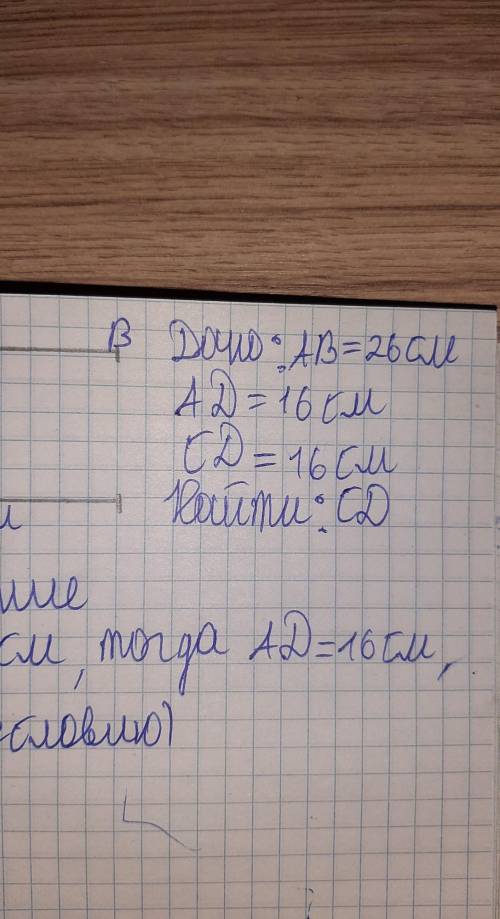 B Дано: AB=26см
AD=16см
CD=16см
Найти: CD
см, тогда AD=16см,
словию)